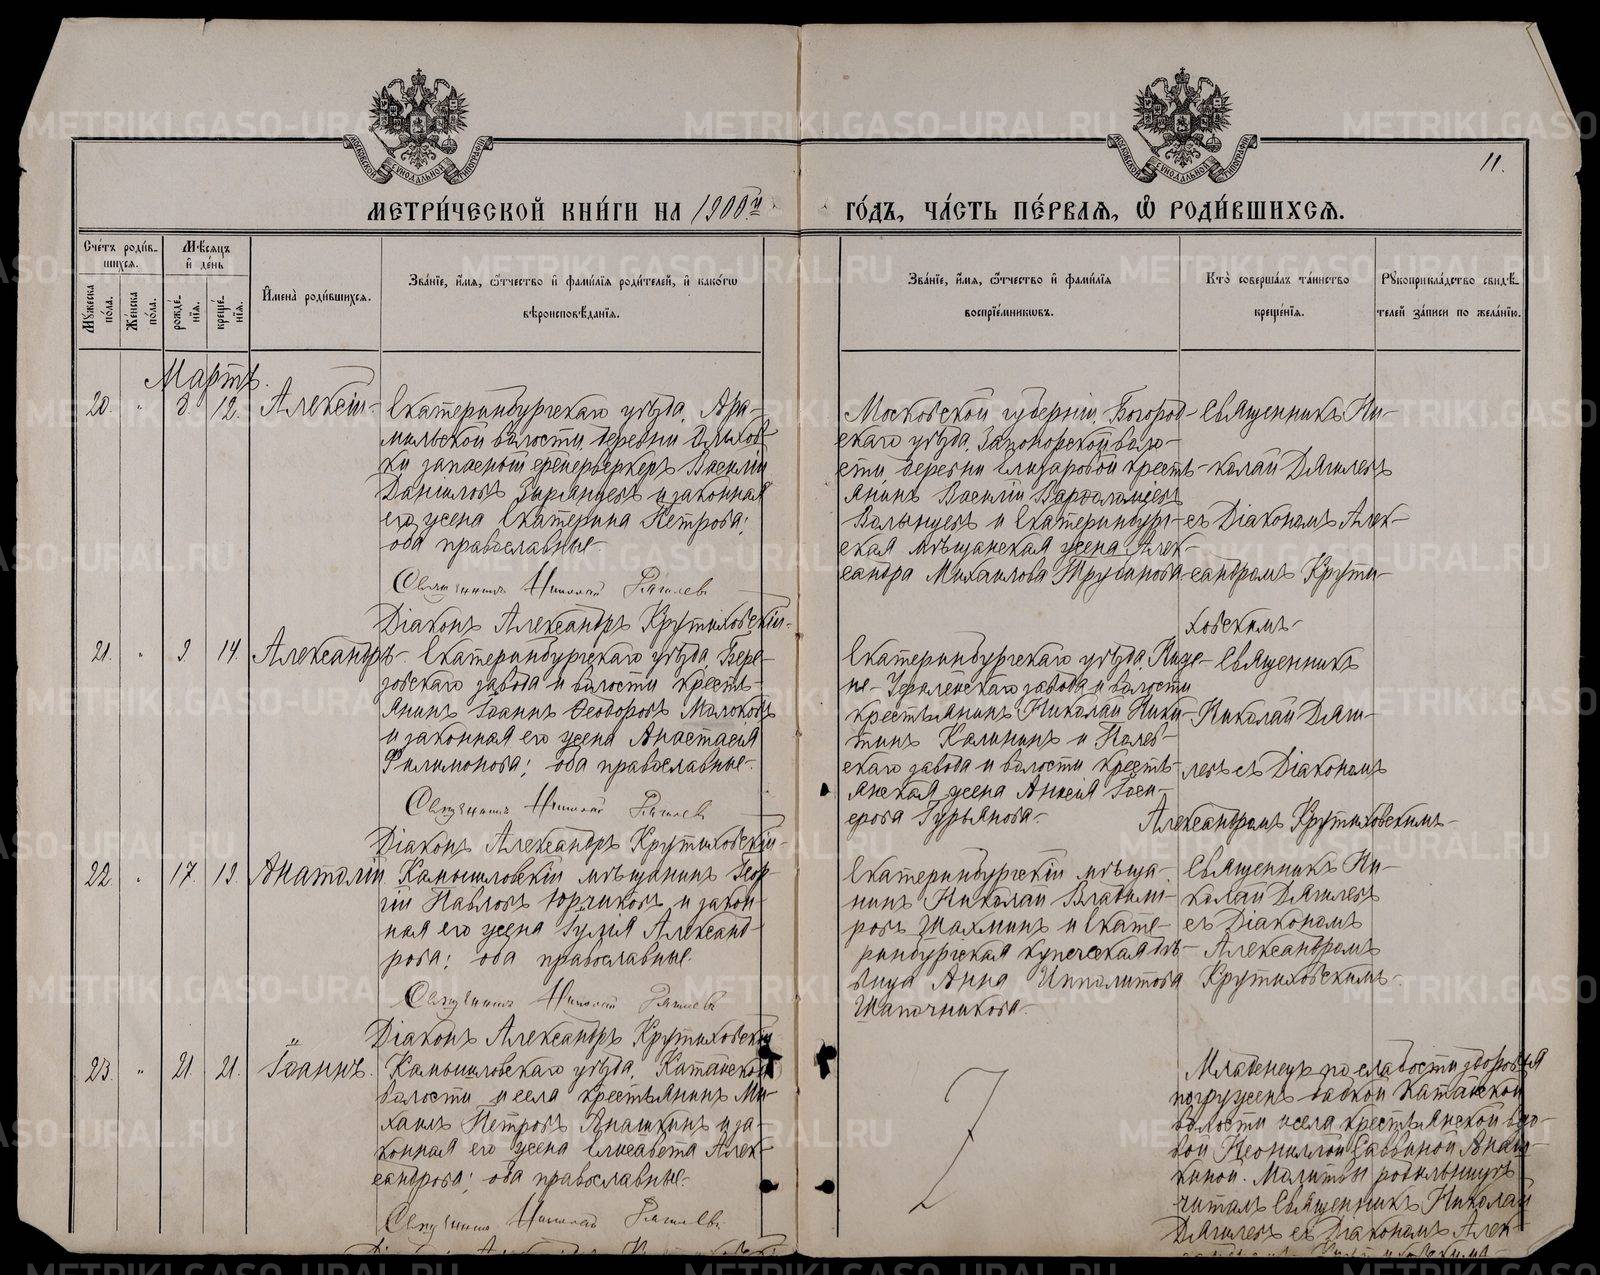 11.
МЕТРИ́ЧЕСКОЙ КНИ́ГИ НА 1900й ГО́ДЪ, ЧА́СТЬ ПЕ́РВАЯ, Ѡ҆ РОДИ́ВШИХСЯ.
МОСКОВСКОЙ СѴНОДАЛЬНОЙ ТИПОГРАФІИ
МОСКОВСКОЙ СѴНОДАЛЬНОЙ ТИПОГРАФІИ
Сче́тъ роди́вшихся.
Му́жеска по́ла.
Же́нска по́ла.
Мѣ́сяцъ и҆ де́нь
рожде́нїя.
креще́нїя.
И҆мена̀ роди́вшихся.
Зва́нїе, и҆́мя, ѻ҆́тчество и҆ фами́лїя роди́телей, и҆ како́гѡ
вѣроисповѣ́данїя.
Зва́нїе, и҆́мя, ѻ҆́тчество и҆ фами́лїя
воспрїе́мниковъ.
Кто̀ соверша́лъ та́инство
креще́нїя.
Рꙋкоприкла́дство свидѣ́-
телей за́писи по жела́нїю.
Мартъ.
20. " 8. 12. Алексій-
Екатеринбургскаго уѣзда, Ара-
мильской волости, деревни Ольхов-
ки запасный фейерверкеръ Василій
Даніиловъ Зырянцевъ и законная
его жена Екатерина Петрова;
оба православные-
Священникъ Николай Дягилевъ
Діаконъ Александръ Крутиховскій-
Московской губерніи, Богород-
скаго уѣзда, Запонорской воло-
сти деревни Елизаровой кресть-
янинъ Василій Варѳоломіевъ
Волынцевъ и Екатеринбург-
ская мѣщанская жена Алек-
сандра Михаилова Трубанова-
Священникъ Ни-
колай Дягилевъ
съ Діакономъ Алек-
сандромъ Крути-
ховскимъ-
21. " 9. 14. Александръ-
Екатеринбургскаго уѣзда, Бере-
зовскаго завода и волости кресть-
янинъ Іоаннъ Ѳеодоровъ Молоковъ
и законная его жена Анастасія
Филимонова; оба православные-
Священникъ Николай Дягилевъ
Діаконъ Александръ Крутиховскій-
Екатеринбургскаго уѣзда, Нязе-
завода и волости
крестьянинъ Николай Ники-
тинъ Калининъ и Полев-
скаго завода и волости кресть-
янская жена
Гурьянова-
Священникъ
Николай Дяги-
левъ съ Діакономъ
Александромъ Крутиховскимъ-
22. " 17. 19. Анатолій
Камышловскій мѣщанинъ Геор-
гій Павловъ Юрчиковъ и закон-
ная его жена Іулія Александ-
рова; оба православные.
Священникъ Николай Дягилевъ
Діаконъ Александръ Крутиховскій
Екатеринбургскій мѣща-
нинъ Николай Владими-
ровъ Шахминъ и Екате-
ринбургская купеческая дѣ-
вица Анна Ипполитова
Шапочникова-
Священникъ Ни-
колай Дягилевъ
съ Діакономъ
Александромъ
Крутиховскимъ-
23. " 21. 21. Іоаннъ.
Камышловскаго уѣзда, Катайской
волости и села крестьянинъ Ми-
хаилъ Петровъ Янашкинъ и за-
конная его жена Елисавета Алек-
сандрова; оба православные-
Священникъ Николай Дягилевъ
Младенецъ по слабости здоровья
погруженъ бабкой Катайской
волости и села крестьянской вдо-
вой Неониллой Саввиной
Молитвы родильницѣ
читалъ Священникъ Николай
Дягилевъ съ Діакономъ Алек-
METRIKI.GASO-URAL.RU